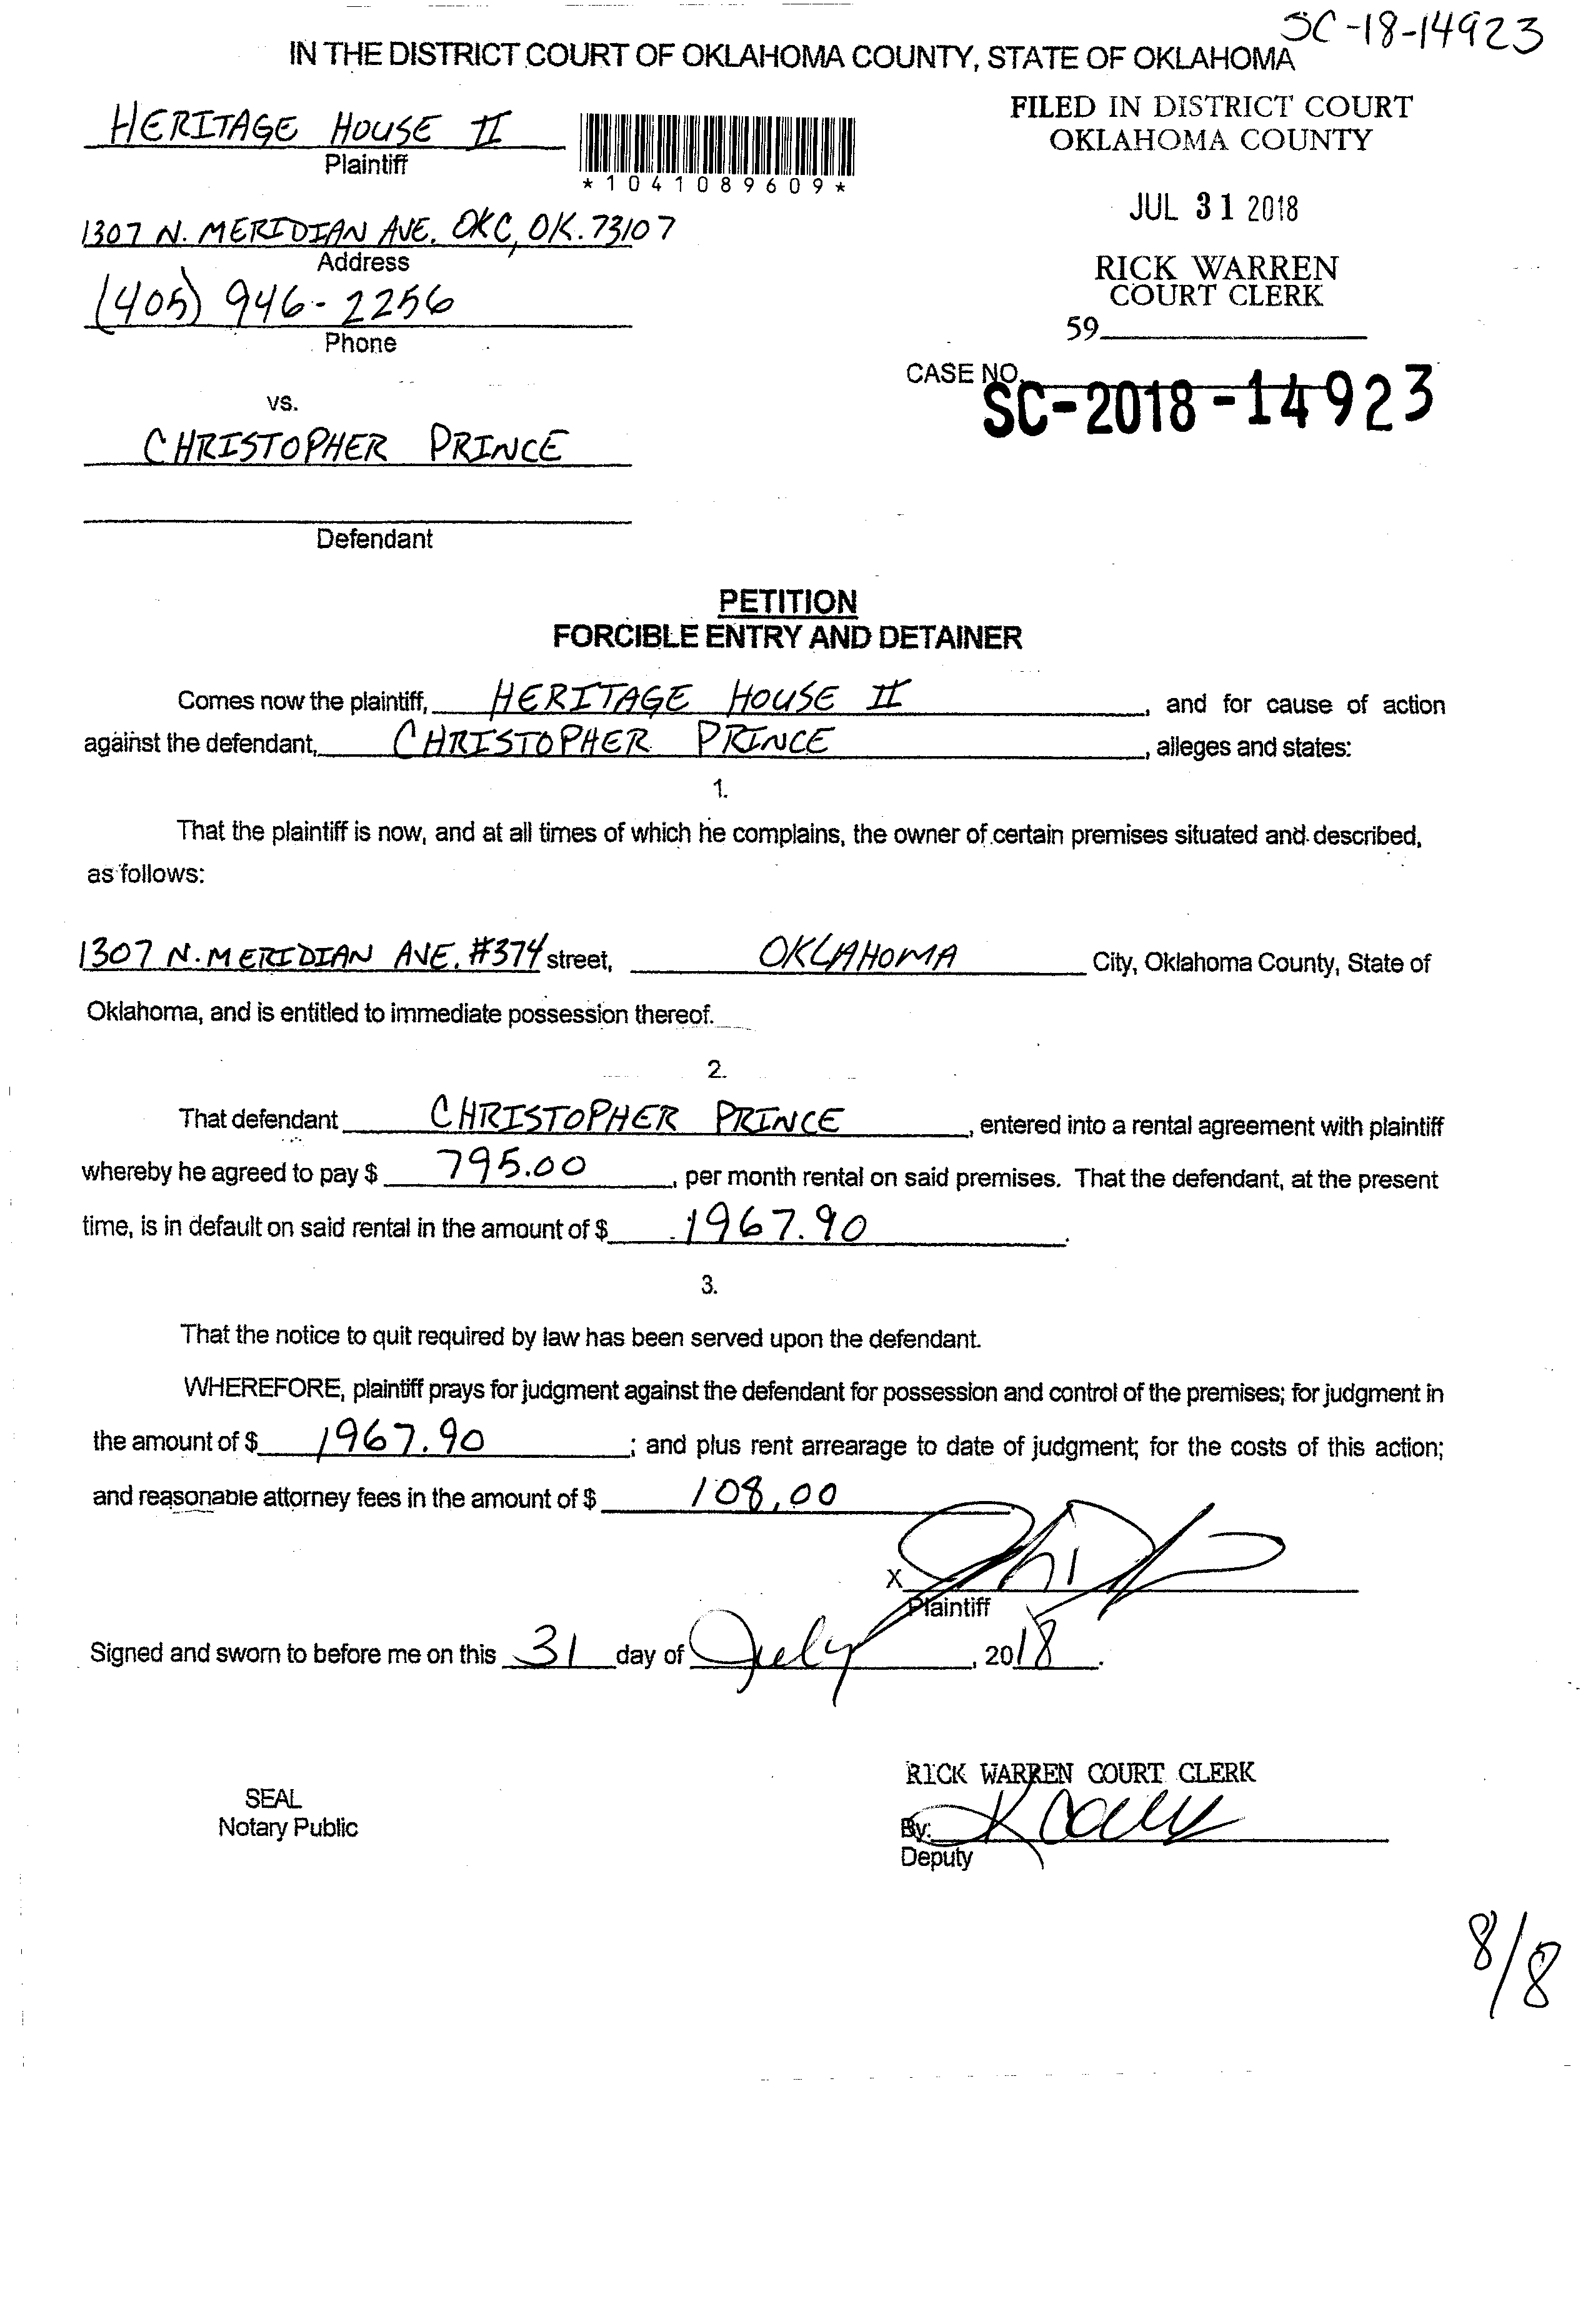 SC-18-14923
IN THE DISTRICT COURT OF OKLAHOMA COUNTY, STATE OF OKLAHOMA
HERITAGE HOUSE II
Plaintiff
*1041089609*
FILED IN DISTRICT COURT
OKLAHOMA COUNTY
JUL 31 2018
RICK WARREN
COURT CLERK
59
1307 N. MERIDIAN AVE. OKC, OK. 73107
Address
(405) 946-2256
Phone
CASE NO.
SC-2018-14923
vs.
CHRISTOPHER PRINCE
Defendant
PETITION
FORCIBLE ENTRY AND DETAINER
Comes now the plaintiff, HERITAGE HOUSE II, and for cause of action
against the defendant, CHRISTOPHER PRINCE, alleges and states:
1.
That the plaintiff is now, and at all times of which he complains, the owner of certain premises situated and described,
as follows:
1307 N. MERIDIAN AVE. #374 street, OKLAHOMA City, Oklahoma County, State of
Oklahoma, and is entitled to immediate possession thereof.
2.
That defendant CHRISTOPHER PRINCE, entered into a rental agreement with plaintiff
whereby he agreed to pay $ 795.00, per month rental on said premises. That the defendant, at the present
time, is in default on said rental in the amount of $ 1967.90.
3.
That the notice to quit required by law has been served upon the defendant.
WHEREFORE, plaintiff prays for judgment against the defendant for possession and control of the premises; for judgment in
the amount of $ 1967.90; and plus rent arrearage to date of judgment; for the costs of this action;
and reasonable attorney fees in the amount of $ 108.00
X
Plaintiff
Signed and sworn to before me on this 31 day of July, 2018.
RICK WARREN COURT CLERK
SEAL
Notary Public
By:
Deputy
8/8